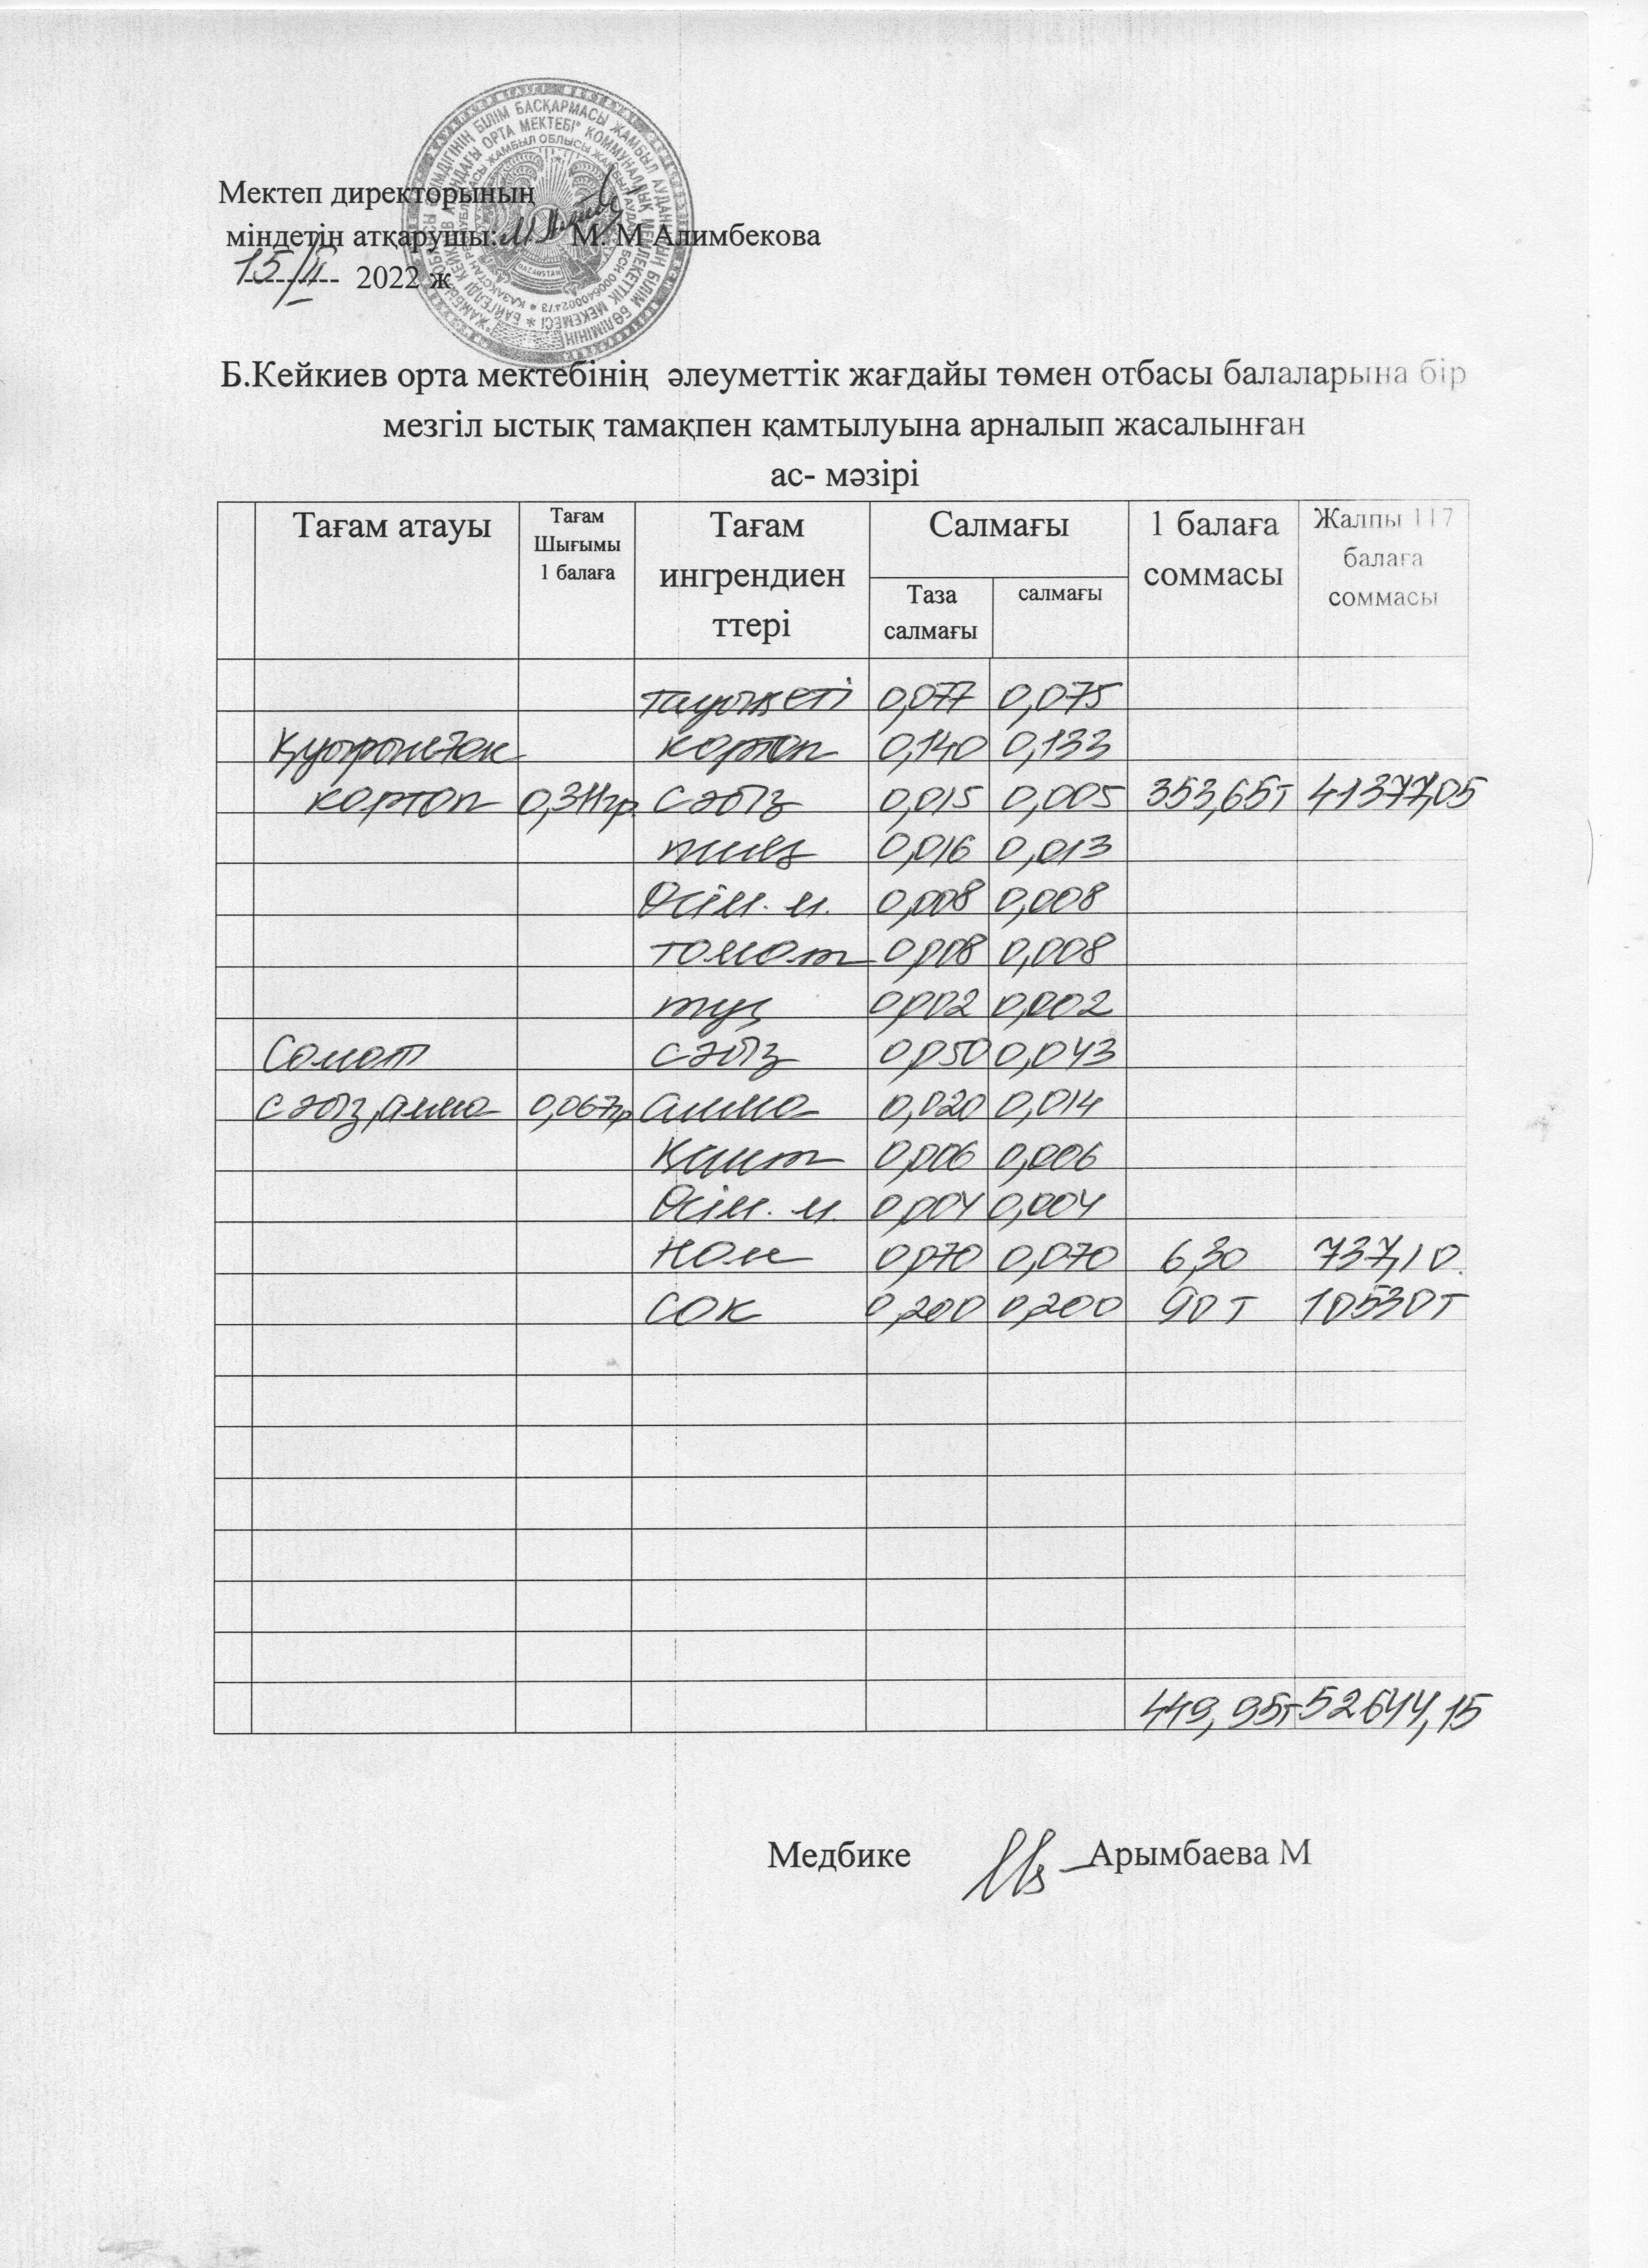 Мектеп директорының
міндетін атқарушы: М. М Алимбекова
15/II 2022 ж
Б.Кейкиев орта мектебінің әлеуметтік жағдайы төмен отбасы балаларына бір
мезгіл ыстық тамақпен қамтылуына арналып жасалынған
ас- мәзірі
Тағам атауы
Тағам
Шығымы
1 балаға
Тағам
ингрендиен
ттері
Салмағы
Таза
салмағы
салмағы
1 балаға
соммасы
Жалпы 117
балаға
соммасы
тауық еті 0,077 0,075
Қуырылған картоп 0,140 0,133
картоп 0,311гр. сәбіз 0,015 0,005 353,65т 41377,05
пияз 0,016 0,013
Өсім. м. 0,008 0,008
томат 0,008 0,008
тұз 0,002 0,002
Салат сәбіз 0,050 0,043
сәбіз,алма 0,067гр алма 0,020 0,014
Қант 0,006 0,006
Өсім. м. 0,004 0,004
нан 0,070 0,070 6,30 737,10.
сок 0,200 0,200 90 т 10530т
449,95т 52644,15
Медбике Арымбаева М